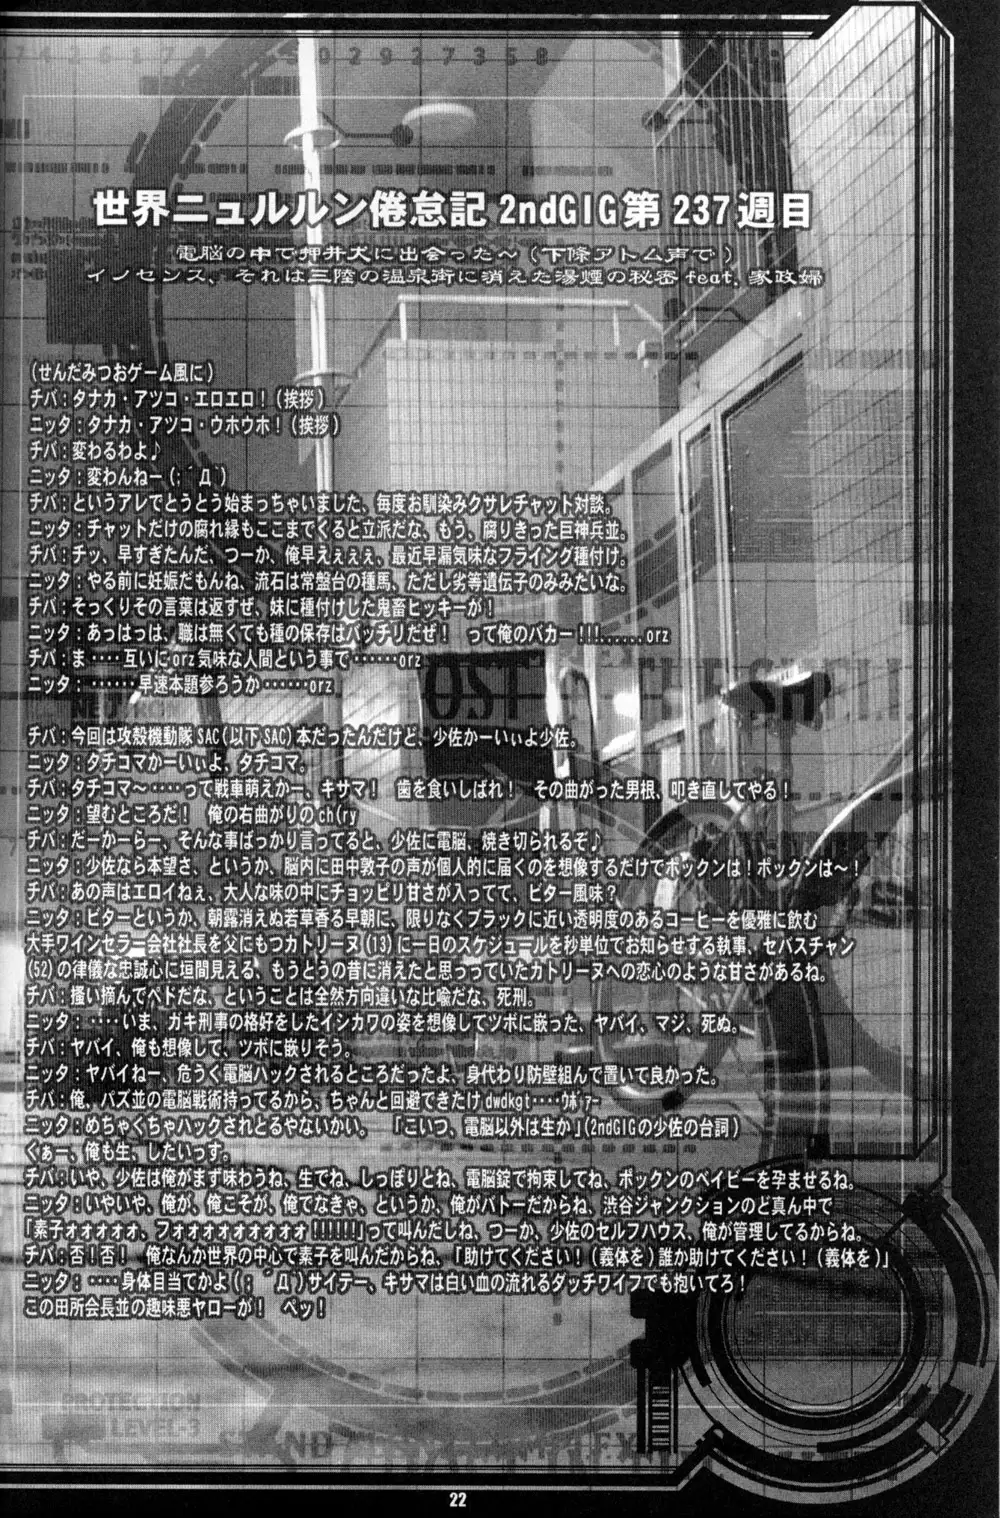 74261 02927358
世界ニュルルン倦怠記 2ndGIG第 237週目
電脳の中で押井犬に出会った～(下條アトム声で)
イノセンス、それは三陸の温泉街に消えた湯煙の秘密 feat. 家政婦
(せんだみつおゲーム風に)
チバ：タナカ・アツコ・エロエロ！(挨拶)
ニッタ：タナカ・アツコ・ウホウホ！(挨拶)
チバ：変わるわよ♪
ニッタ：変わんねー(；´Д`)
チバ：というアレでとうとう始まっちゃいました、毎度お馴染みクサレチャット対談。
ニッタ：チャットだけの腐れ縁もここまでくると立派だな、もう、腐りきった巨神兵並。
チバ：チッ、早すぎたんだ、つーか、俺早えぇぇぇ、最近早漏気味なフライング種付け。
ニッタ：やる前に妊娠だもんね、流石は常盤台の種馬、ただし劣等遺伝子のみみたいな。
チバ：そっくりその言葉は返すぜ、妹に種付けした鬼畜ヒッキーが！
ニッタ：あっはっは、職は無くても種の保存はバッチリだぜ！　って俺のバカー!!!......orz
チバ：ま‥‥互いにorz気味な人間という事で‥‥‥orz
ニッタ：‥‥‥‥早速本題参ろうか‥‥‥orz
チバ：今回は攻殻機動隊SAC(以下SAC)本だったんだけど、少佐かーいぃよ少佐。
ニッタ：タチコマかーいぃよ、タチコマ。
チバ：タチコマ～‥‥‥って戦車萌えかー、キサマ！　歯を食いしばれ！　その曲がった男根、叩き直してやる！
ニッタ：望むところだ！　俺の右曲がりのch(ry
チバ：だーかーらー、そんな事ばっかり言ってると、少佐に電脳、焼き切られるぞ♪
ニッタ：少佐なら本望さ、というか、脳内に田中敦子の声が個人的に届くのを想像するだけでボックンは！ボックンは～！
チバ：あの声はエロイねぇ、大人な味の中にチョッピリ甘さが入ってて、ビター風味？
ニッタ：ビターというか、朝露消えぬ若草香る早朝に、限りなくブラックに近い透明度のあるコーヒーを優雅に飲む
大手ワインセラー会社社長を父にもつカトリーヌ(13)に一日のスケジュールを秒単位でお知らせする執事、セバスチャン
(52)の律儀な忠誠心に垣間見える、もうとうの昔に消えたと思っっていたカトリーヌへの恋心のような甘さがあるね。
チバ：掻い摘んでペドだな、ということは全然方向違いな比喩だな、死刑。
ニッタ：‥‥‥いま、ガキ刑事の格好をしたイシカワの姿を想像してツボに嵌った、ヤバイ、マジ、死ぬ。
チバ：ヤバイ、俺も想像して、ツボに嵌りそう。
ニッタ：ヤバイねー、危うく電脳ハックされるところだったよ、身代わり防壁組んで置いて良かった。
チバ：俺、パズ並の電脳戦術持ってるから、ちゃんと回避できたけdwdkgt‥‥ｳﾎﾞｧｰ
ニッタ：めちゃくちゃハックされとるやないかい。　「こいつ、電脳以外は生か」(2ndGIGの少佐の台詞)
くぁー、俺も生、したいっす。
チバ：いや、少佐は俺がまず味わうね、生でね、しっぽりとね、電脳錠で拘束してね、ボックンのベイビーを孕ませるね。
ニッタ：いやいや、俺が、俺こそが、俺でなきゃ、というか、俺がバトーだからね、渋谷ジャンクションのど真ん中で
「素子ォォォォォ、フォォォォォォォォォ!!!!!!」って叫んだしね、つーか、少佐のセルフハウス、俺が管理してるからね。
チバ：否！否！　俺なんか世界の中心で素子を叫んだからね、「助けてください！(義体を)誰か助けてください！(義体を)」
ニッタ：‥‥‥身体目当てかよ(；´Д`)サイテー、キサマは白い血の流れるダッチワイフでも抱いてろ！
この田所会長並の趣味悪ヤローが！　ペッ！
PROTECTION
LEVEL-3
22